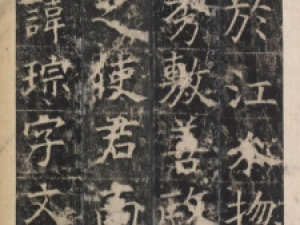 於江水物
秀敷善政
之使君南
諱琮字文